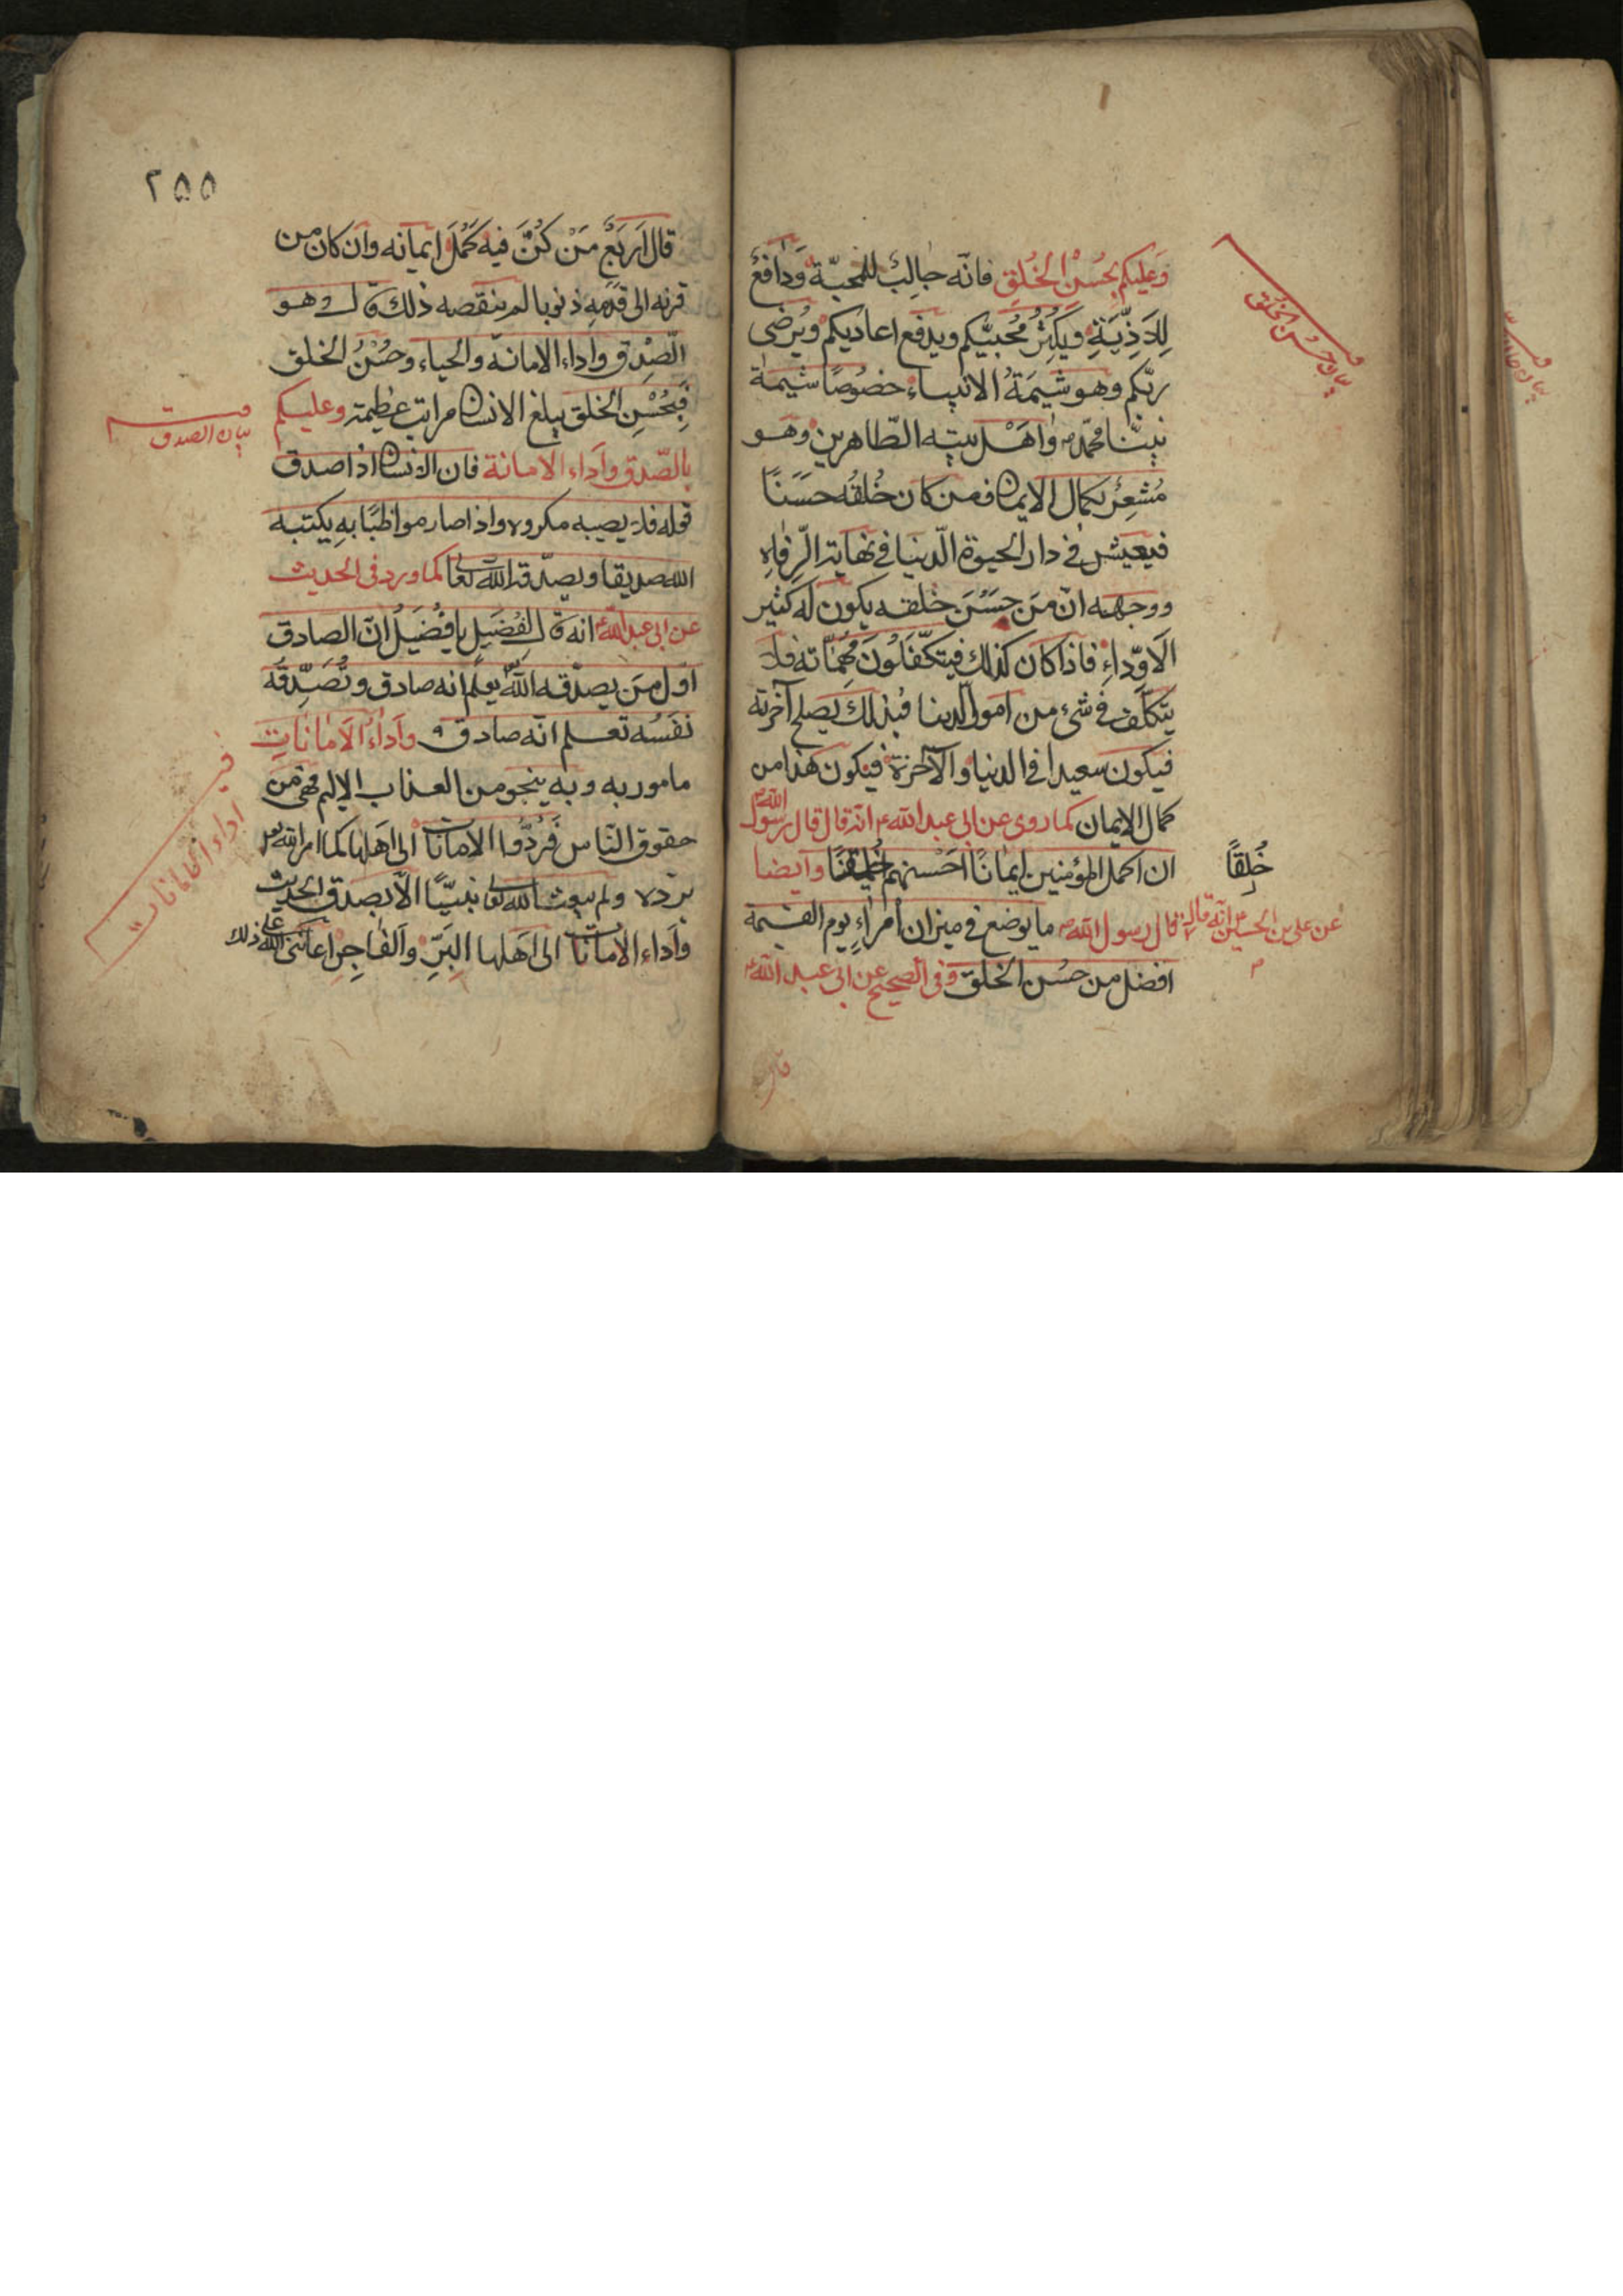 وَعليكم بحُسْنِ الخُلقِ فانّه جالِبٌ للمحبّة وَدافعٌ
لِلاَذِيّةِ ويَكثِرُ مُحبيّكم ويدفع اعاديكم ويُرضى
ربّكم وهو شيمَةُ الانبياء خصُوصًا شيمة
نبيّنا محمّد ص واهْل بيته الطّاهرين وهو
مُشعِرٌ بكمال الايمان فمن كان خُلقُه حسَنًا
فيعيش في دار الحيوة الدّنيا في نهاية الرّفاه
ووجهه انّ مَن حسُنَ خلقه يكون له كثير
الاَوِدّاءِ فاذا كان كذلك فيتكفّلونَ مهمّاته فلا
يتكلّف في شئ من امور الدنيا فبذلك يصلح آخرته
فيكون سعيدا في الدنيا والآخرة فيكون هذا من
كمال الايمان كما روى عن ابى عبد الله ع انه قال قال رسول الله ص
ان اكمل المؤمنين ايمانًا احسنهم خُلقًا وايضا
عن على بن الحسين ع انه قال قال رسول الله ص ما يوضع في ميزان امراءٍ يوم القيمة
افضل من حسُن الخلق وفى الصحيح عن ابى عبد الله ع
بيان حسن الخلق
خُلقًا
قال
٢٥٥
قال اَربَعٌ مَنْ كُنَّ فيه كَمُلَ ايمانه وان كان من
قرنه الى قدمِه ذنوبا لم ينقصه ذلك قال وهو
الصّدق واداء الامانة والحياء وحُسْنُ الخلق
فبِحُسْنِ الخلق يبلغ الانسان مراتب عظيمة وعليكم
بالصّدق واَداء الامانة فان الانسان اذا صدق
قوله فلا يصيبه مكروه واذا صار مواظبًا بهِ يكتبه
الله صديقا ويصدّقه الله تعالى كما ورد في الحديث
عن ابى عبد الله ع انه قال لفُضَيلٍ يا فُضَيلُ انّ الصادق
اوّل مَن يصدّقه الله يعلم انه صادق وتُصَدِّقه
نفسُه تعلم انّه صادق وَاَداءُ الاَماناتِ
مامور به وبه ينجو من العذاب الاليم فهى من
حقوق النّاس فَرُدُّوا الامانات الى اهلها كما امر الله
بردّه ولم يبعث الله تعالى نبيّا الّا بصدق الحديث
واَداء الامانات الى اهلها البَرِّ والفاجِرِ اعاننى الله على ذلك
بيان الصدق
اداء الامانات